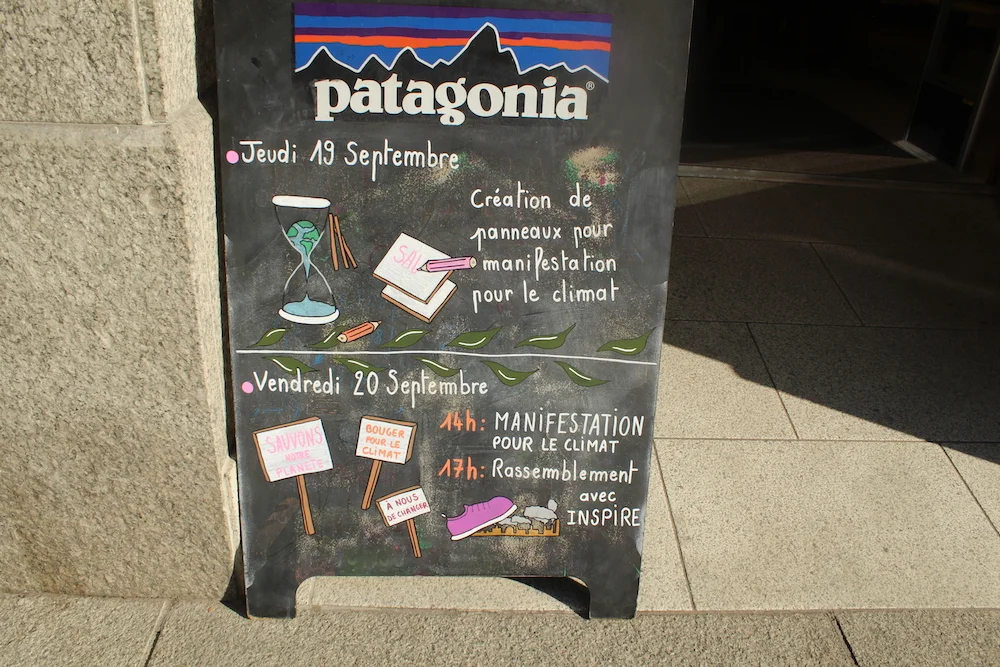 patagonia®
Jeudi 19 Septembre
Création de
panneaux pour
manifestation
pour le climat
SAU
Vendredi 20 Septembre
14h: MANIFESTATION
POUR LE CLIMAT
17h: Rassemblement
avec
INSPIRE
SAUVONS
NOTRE
PLANÈTE
BOUGER
POUR LE
CLIMAT
À NOUS
DE CHANGER